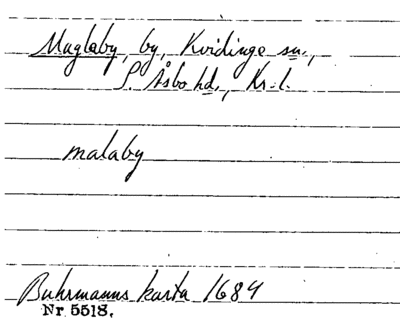 Maglaby, by, Kvidinge sn.,
S. Åsbo hd., Kr. l.
malaby
Buhrmanns karta 1684
Nr 5518.